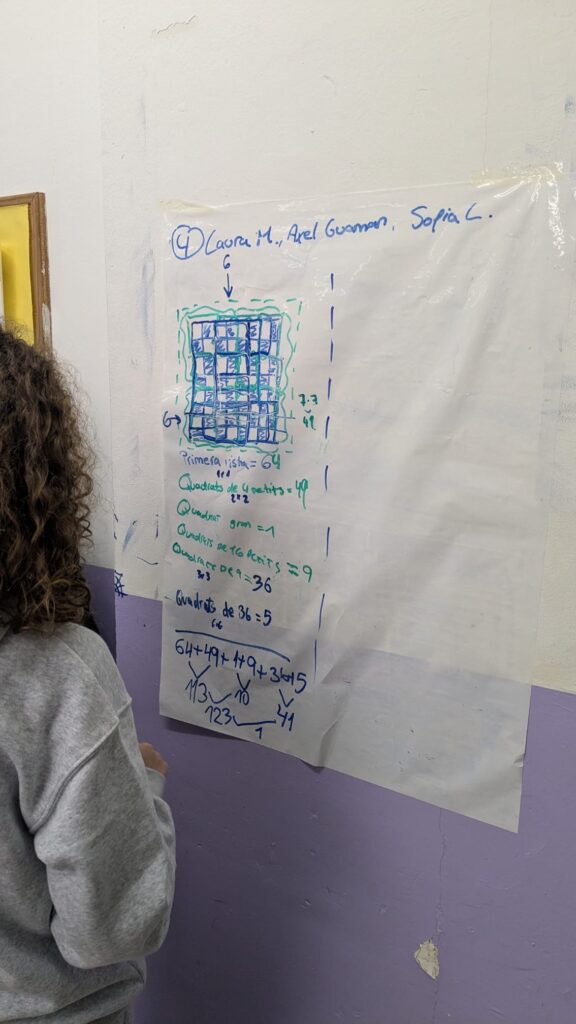 4 Laura M., Axel Guaman, Sofia L.
6
7·7
49
6→
Primera llista = 64
1×1
Quadrats de 4 petits = 49
2×2
Quadrat gran = 1
Quadrats de 16 Petits = 9
Quadrats DE 9 = 36
3×3
Quadrats de 36 = 5
6×6
64+49+1+9+36+5
113 10
123 41
1